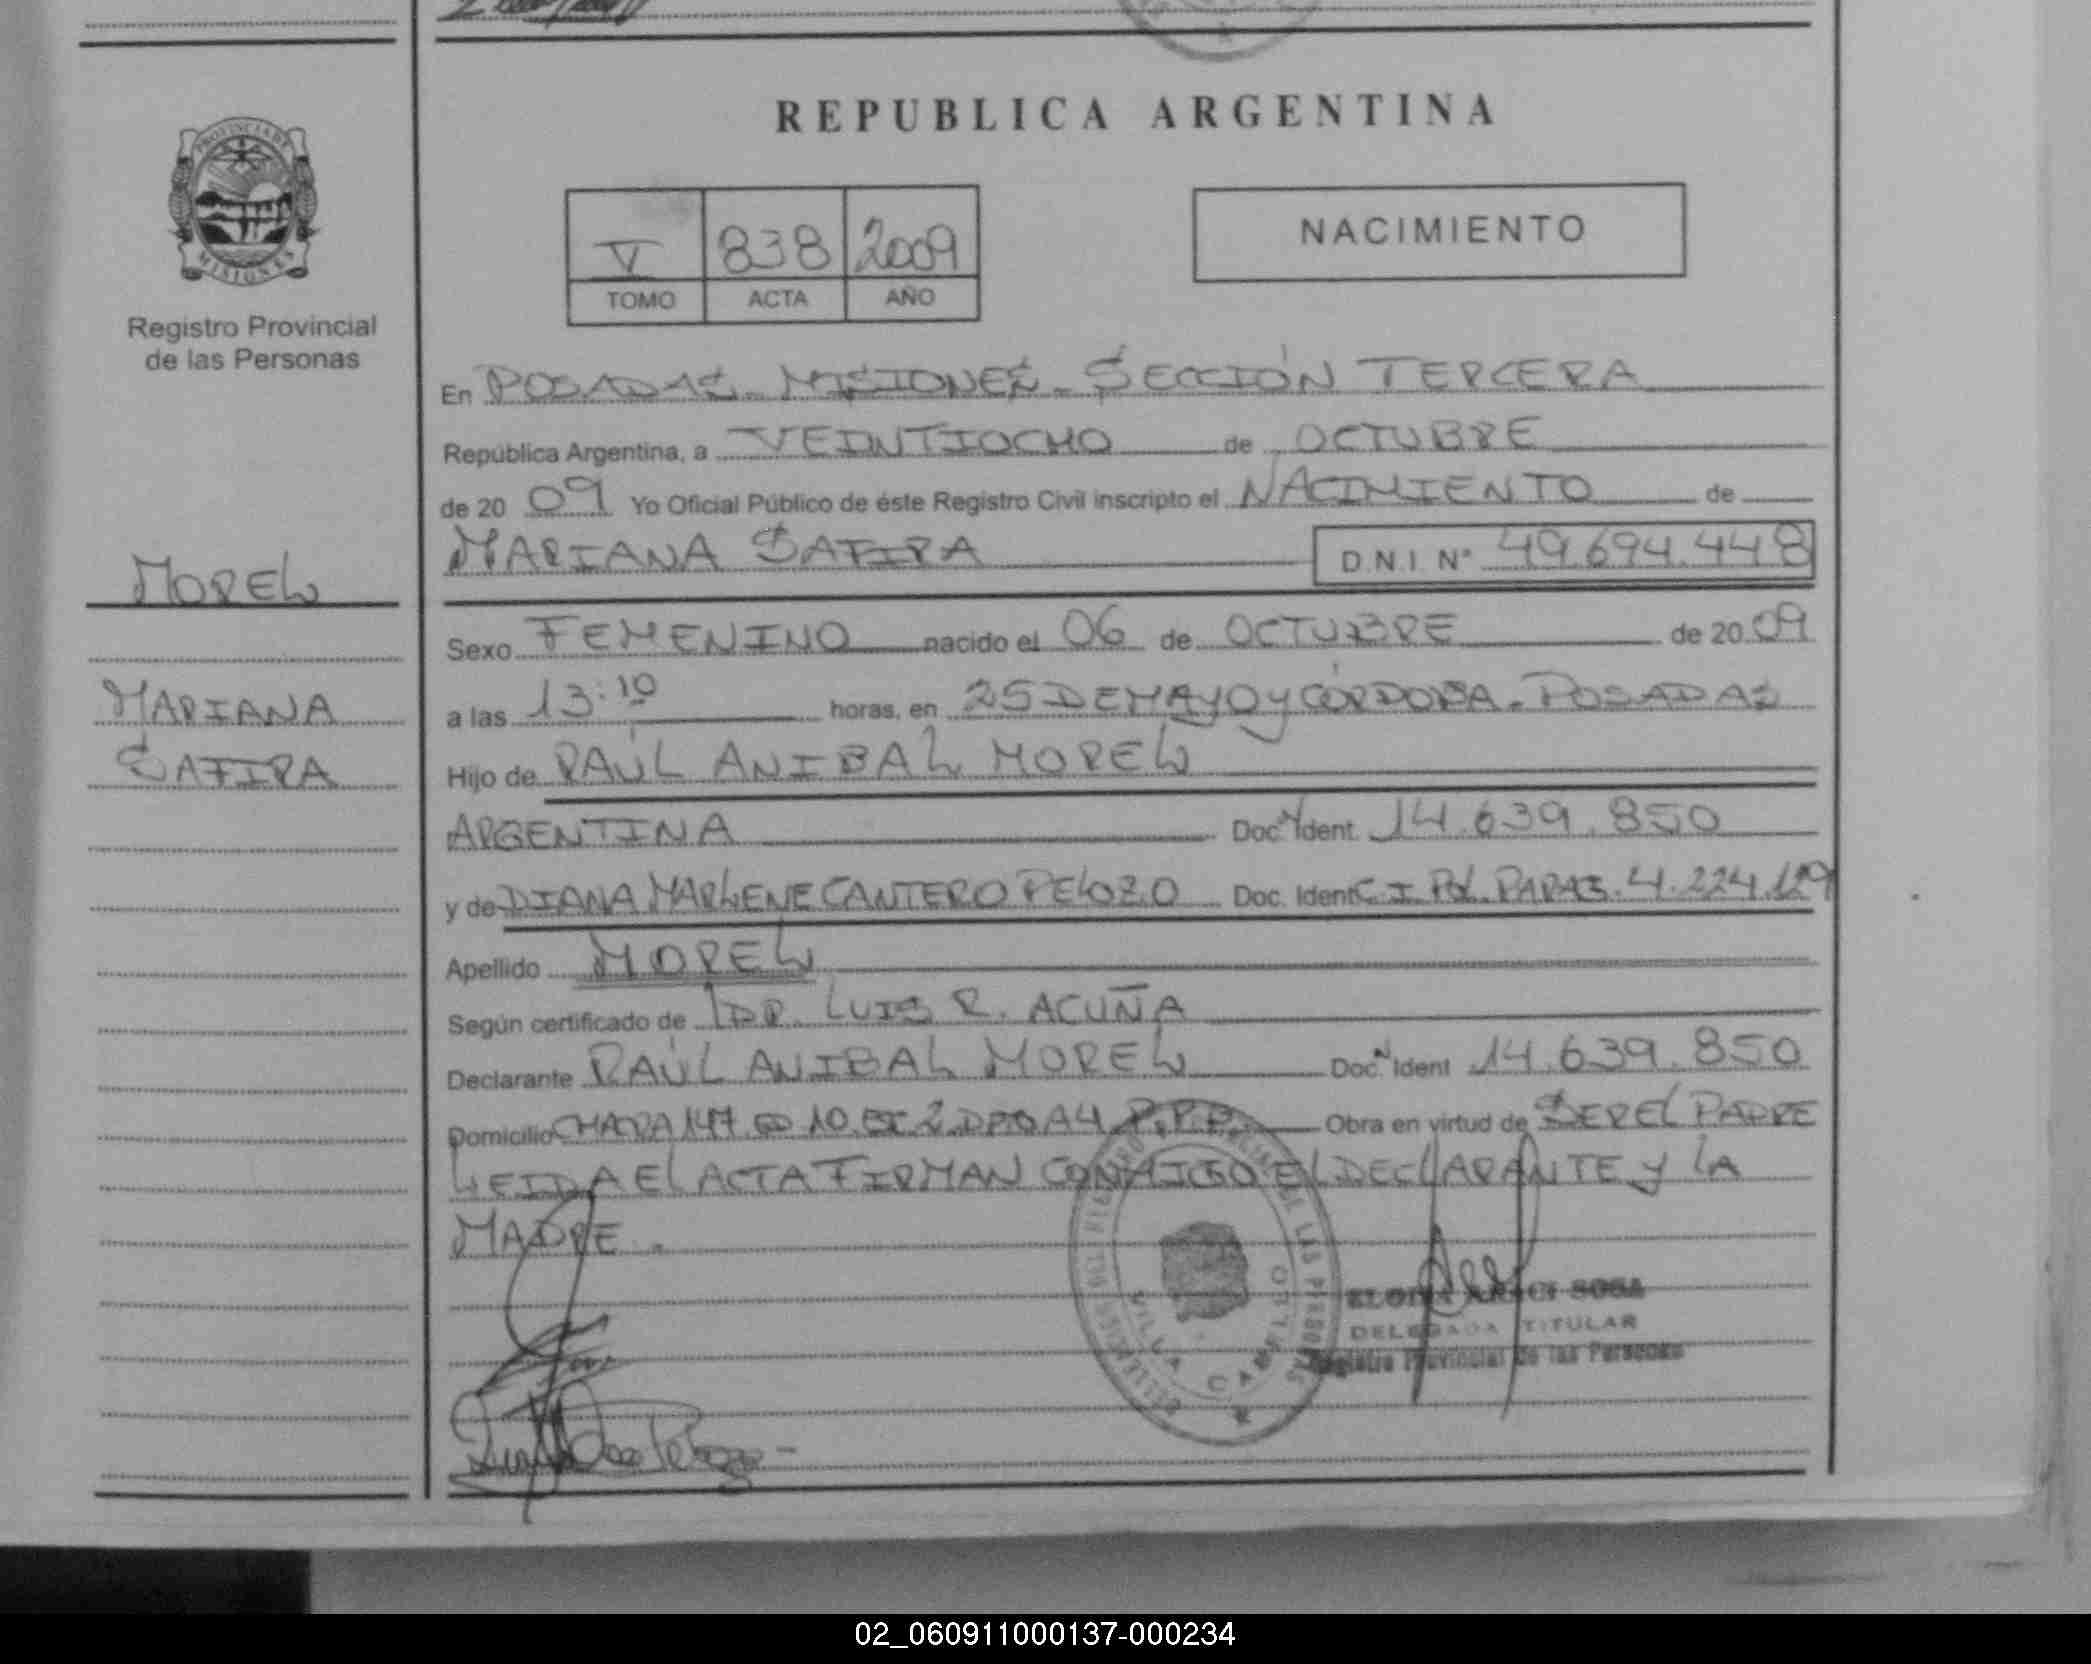 REPUBLICA ARGENTINA
PROVINCIA DE
MISIONES
V 838 2009
TOMO ACTA AÑO
NACIMIENTO
Registro Provincial
de las Personas
En POSADAS - MISIONES - SECCIÓN TERCERA
República Argentina, a VEINTIOCHO de OCTUBRE
de 20 09 Yo Oficial Público de éste Registro Civil inscripto el NACIMIENTO de
MARIANA SAFIRA D.N.I. N° 49.694.448
MOREL
Sexo FEMENINO nacido el 06 de OCTUBRE de 20 09
MARIANA
SAFIRA
a las 13:10 horas, en 25 DE MAYO y CÓRDOBA - POSADAS
Hijo de RAÚL ANIBAL MOREL
ARGENTINA Doc. N Ident. 14.639.850
y de DIANA MARLENE CANTERO PELOZO Doc. Ident C.I. POL. PARAG. 4.224.129
Apellido MOREL
Según certificado de DR. LUIS R. ACUÑA
Declarante RAÚL ANIBAL MOREL Doc. N Ident 14.639.850
Domicilio CHACRA 147 ED 10 ESC 2 DPTO A4 Obra en virtud de SER EL PADRE
LEIDA EL ACTA FIRMAN CONMIGO EL DECLARANTE y LA
MADRE.
VILLA CABELLO
SOSA
DELEGADA TITULAR
Registro Provincial de las Personas
02_060911000137-000234